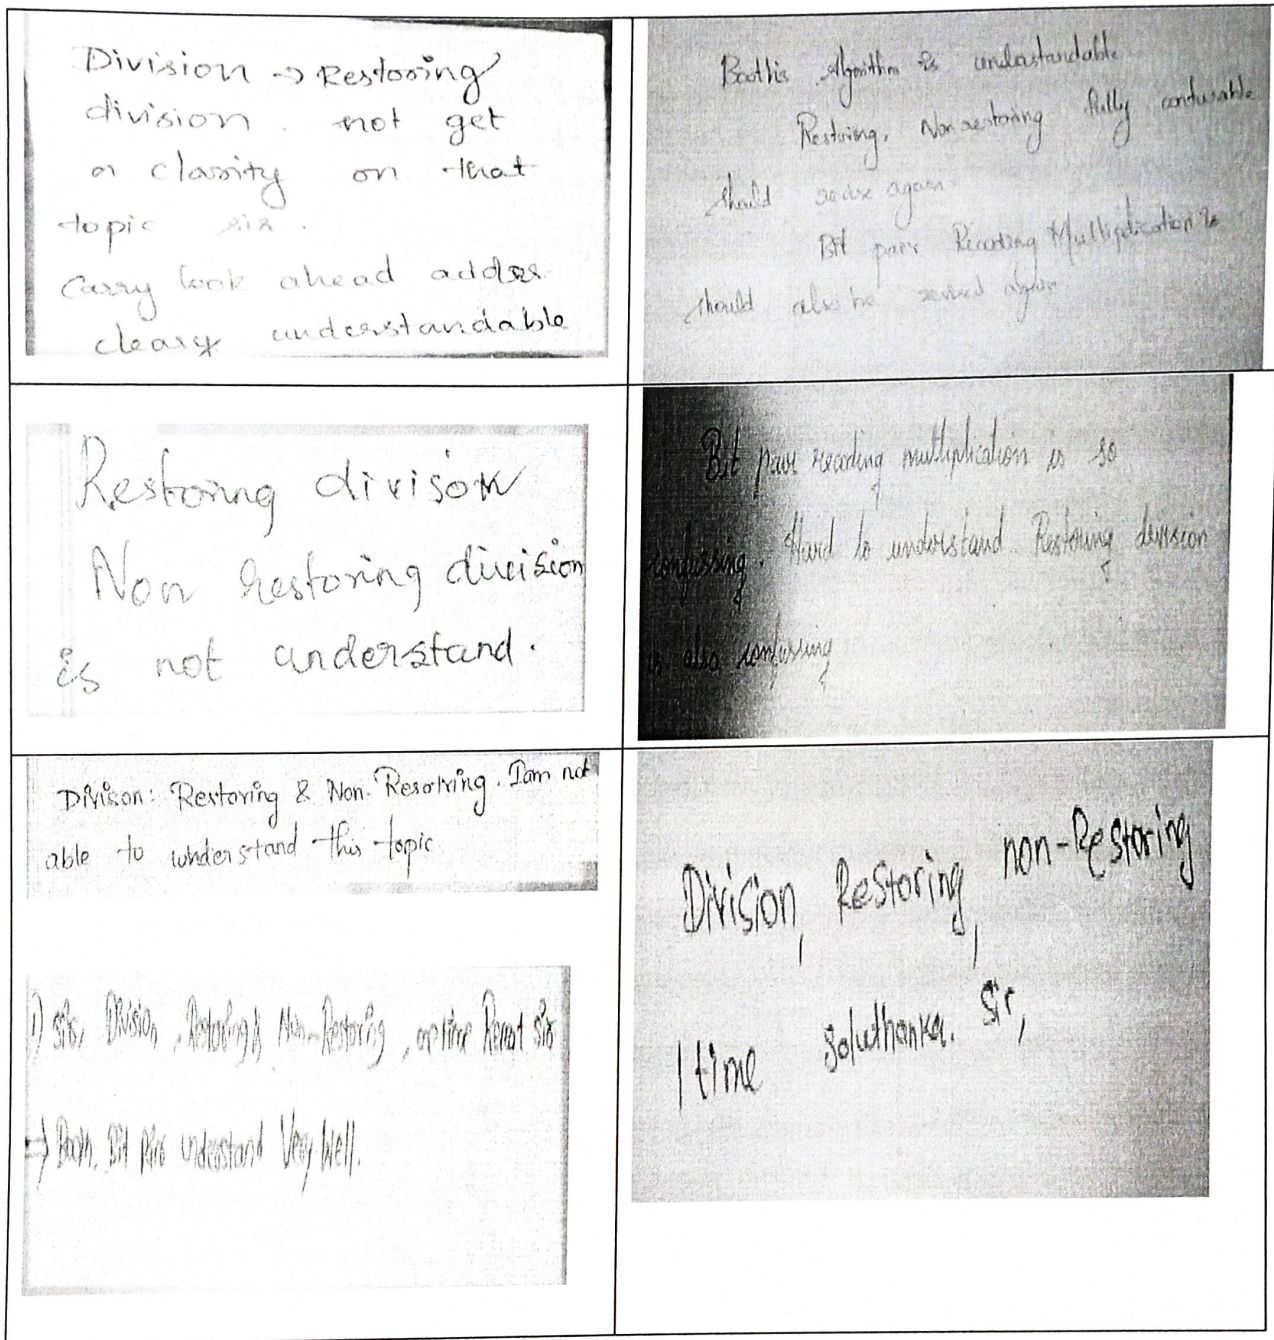 Division → Restoring
division. not get
a clarity on that
topic sir.
Carry look ahead adder
cleary understandable
Booth's Algorithm is understandable
Restoring, Non restoring fully confusable
should revise again.
Bit pair Recoding Multiplication is
should also be revised again
Restoring divison
Non Restoring division
is not understand.
Bit pair recoding multiplication is so
confussing. Hard to understand. Restoring division
is also confussing
Divison: Restoring & Non-Resotring. I am not
able to understand this topic
1) sir, Division, Restoring & Non-Restoring, Repeat sir
→ Booth, Bit pair understand Very Well.
Division, Restoring, non-Restoring
1 time soluthanka. Sir,